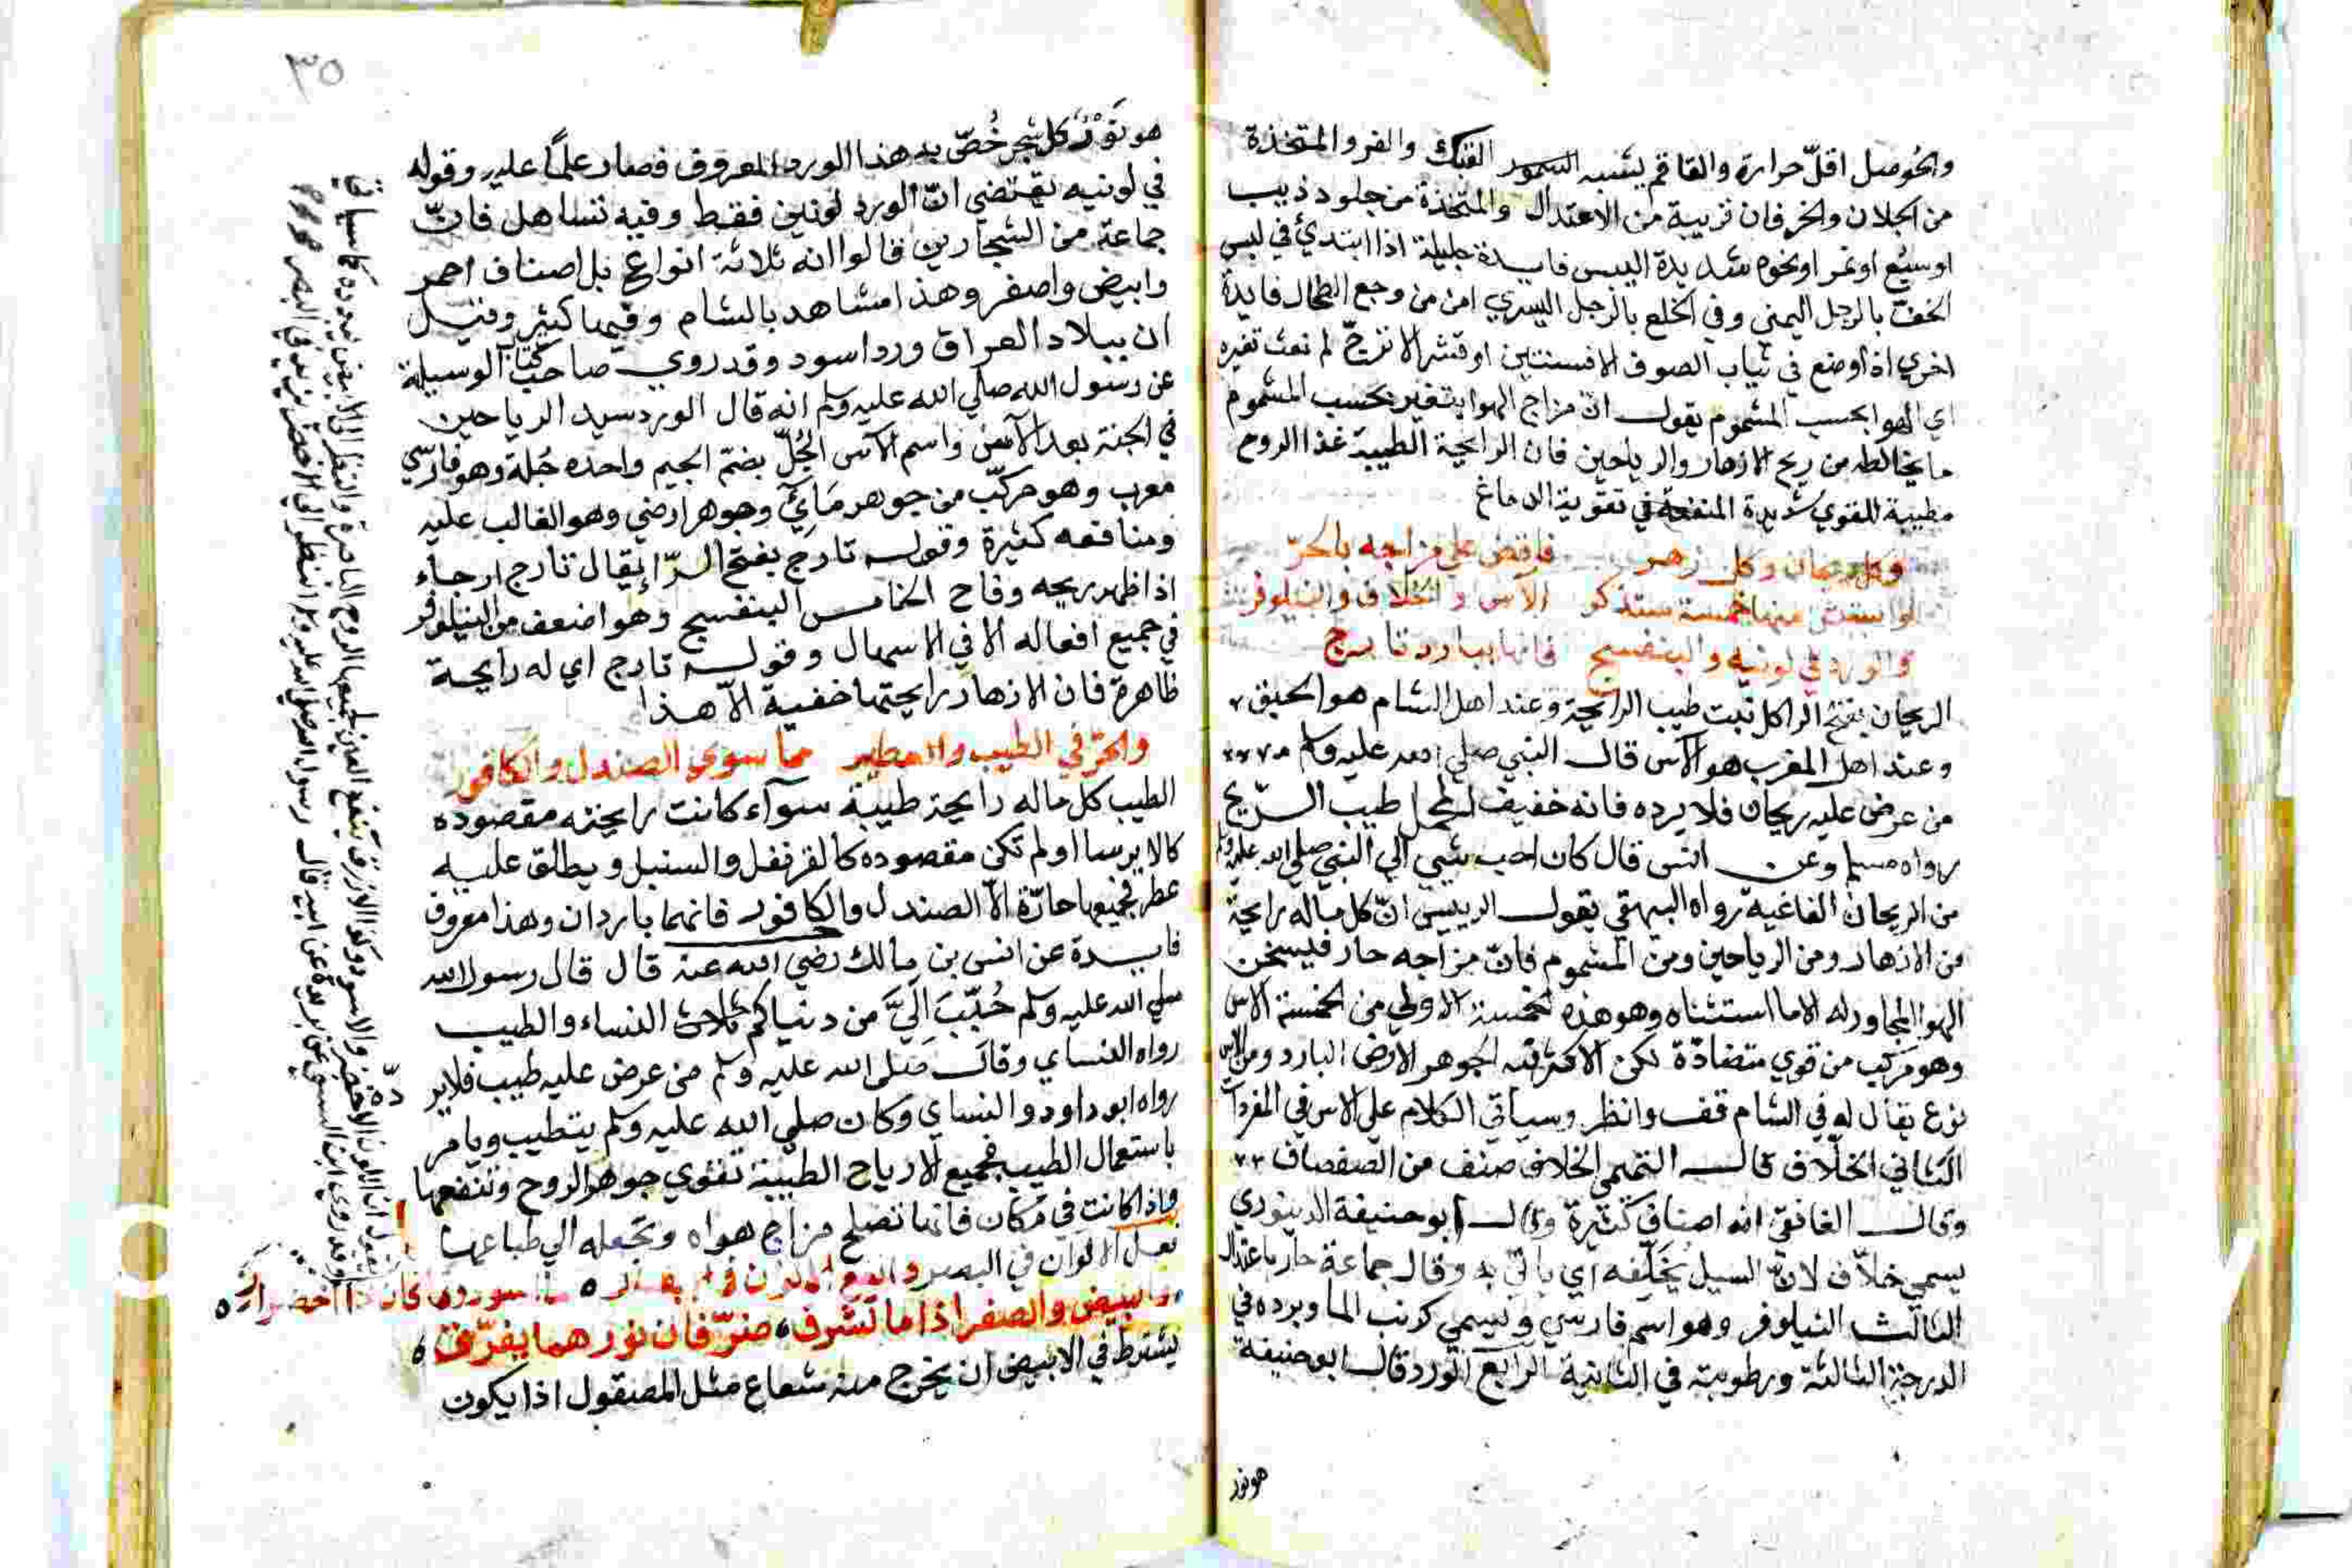 والحوصل اقلّ حرارة والقاقم يشبه السمور الفنك والفرو المتخذة
من الحلان والخرفان قريبة من الاعتدال والمتخذة من جلود ذيب
او سبع او نمر او نحوه شديدة اليبس فايدة جليلة اذا ابتدئ في لبس
الخف بالرجل اليمني وفي الخلع بالرجل اليسري امن من وجع الطحال فايدة
اخري اذا وضع في ثياب الصوف الافسنتين او قشر الاترجّ لم تعث تغيره
اي الهوا بحسب المشموم يقول ان مزاج الهوا يتغير بحسب المشموم
ما يخالطه من ريح الازهار والرياحين فان الرايحة الطيبة غذا الروح
مطيبة للقوي شديدة المنفعة في تقوية الدماغ
وكل ريحان وكل زهر فاقض علي مزاجه بالحرّ
منها خمسة ستذكر الآس والخلاف والنيلوفر
والورد في لونيه والبنفسج فانها ببارد تارج
الريحان بفتح الرا كل نبت طيب الرايحة وعند اهل الشام هو الحبق
وعند اهل المغرب هو الآس قال النبي صلي الله عليه وسلم
من عرض عليه ريحان فلا يرده فانه خفيف المحمل طيب الريح
رواه مسلم وعن انس قال كان احب شيي الي النبي صلي الله عليه وسلم
من الريحان الفاغية رواه البيهقي يقول الرييس انّ كل ماله رايحة
من الازهار ومن الرياحين ومن المشموم فانّ مزاجه حار فيسخن
الهوا المجاور له الا ما استثناه وهو هذه الخمسة الاولي من الخمسة الاس
وهو مركب من قوي متضادّة لكن الاكثر فيه الجوهر الارضي البارد ومن الاس
نوع يقال له في الشام قف وانظر وسياتي الكلام علي الاس في المفردات
الثاني الخلاف قال التميمي الخلاف صنف من الصفصاف
وقال الغافقي انه اصناف كثيرة وقال ابو حنيفة الدينوري
يسمي خلاّف لانّ السيل يخلّفه اي ياتي به وقال جماعة حار باعتدال
الثالث النيلوفر وهو اسم فارسي ويسمي كرنب الما وبرده في
الدرجة الثالثة ورطوبته في الثانية الرابع الورد قال ابو حنيفة
هو نور
٣٥
هو نَوْرُ كل شجر خُصّ به هذا الورد المعروف فصار علماً عليه وقوله
في لونيه يقتضي انّ الورد لونين فقط وفيه تساهل فانّ
جماعة من الشجارين قالوا انه ثلاثة انواع بل اصناف احمر
وابيض واصفر وهذا مشاهد بالشام وفيها كثير وقيل
ان ببلاد العراق ورد اسود وقد روي صاحب كتاب الوسيلة
عن رسول الله صلي الله عليه وسلم انه قال الورد سيد الرياحين
في الجنة بعد الآس واسم الآس الجُلّ بضم الجيم واحده جُلة وهو فارسي
معرب وهو مركّب من جوهر مَائي وجوهر ارضي وهو الغالب عليه
ومنافعه كثيرة وقوله تارج بفتح الرّا يقال تارج ارجاء
اذا ظهر ريحه وفاح الخامس البنفسج وهو اضعف من النيلوفر
في جميع افعاله الا في الاسهال وقوله تارج اي له رايحة
ظاهرة فان الازهار رايحتها خفية الّا هذا
والحرّ في الطيب والعطير مما سوي الصندل والكافور
الطيب كل ماله رايحة طيبة سوآء كانت رايحته مقصوده
كالايرسا او لم تكن مقصوده كالقرنفل والسنبل ويطلق عليه
عطر فجميعها حارّة الّا الصندل والكافور فانهما باردان وهذا معروف
فايدة عن انس بن مالك رضي الله عنه قال قال رسول الله
صلي الله عليه وسلم حُبّبَ اِليَّ من دنياكم ثلاث النساء والطيب
رواه النساي وقال صلي الله عليه وسلم من عرض عليه طيب فلا ير
ده
رواه ابو داود والنساي وكان صلي الله عليه وسلم يتطيب ويامر
باستعمال الطيب فجميع الارياح الطيبة تقوي جوهر الروح وتنفعها
واذا كانت في مكان فانها تصلح مزاج هواه وتجعله الي طباعها
فعل الالوان في البصر
والبيض والصفر اذا ما تشرف ضرّ فان نورهما يفرّق
يشترط في الابيض ان يخرج منه شعاع مثل المصقول اذا يكون
يقول ان اللون الاخضر والاسود وكذا الازرق ينفع العين لجمعها الروح الباصرة والنظر الي الابيض يبدده كما سياتي
وقد روي ابن السني عن بريدة عن ابيه قال رسول الله صلي الله عليه وسلم النظر الي الاخضر يزيد في البصر